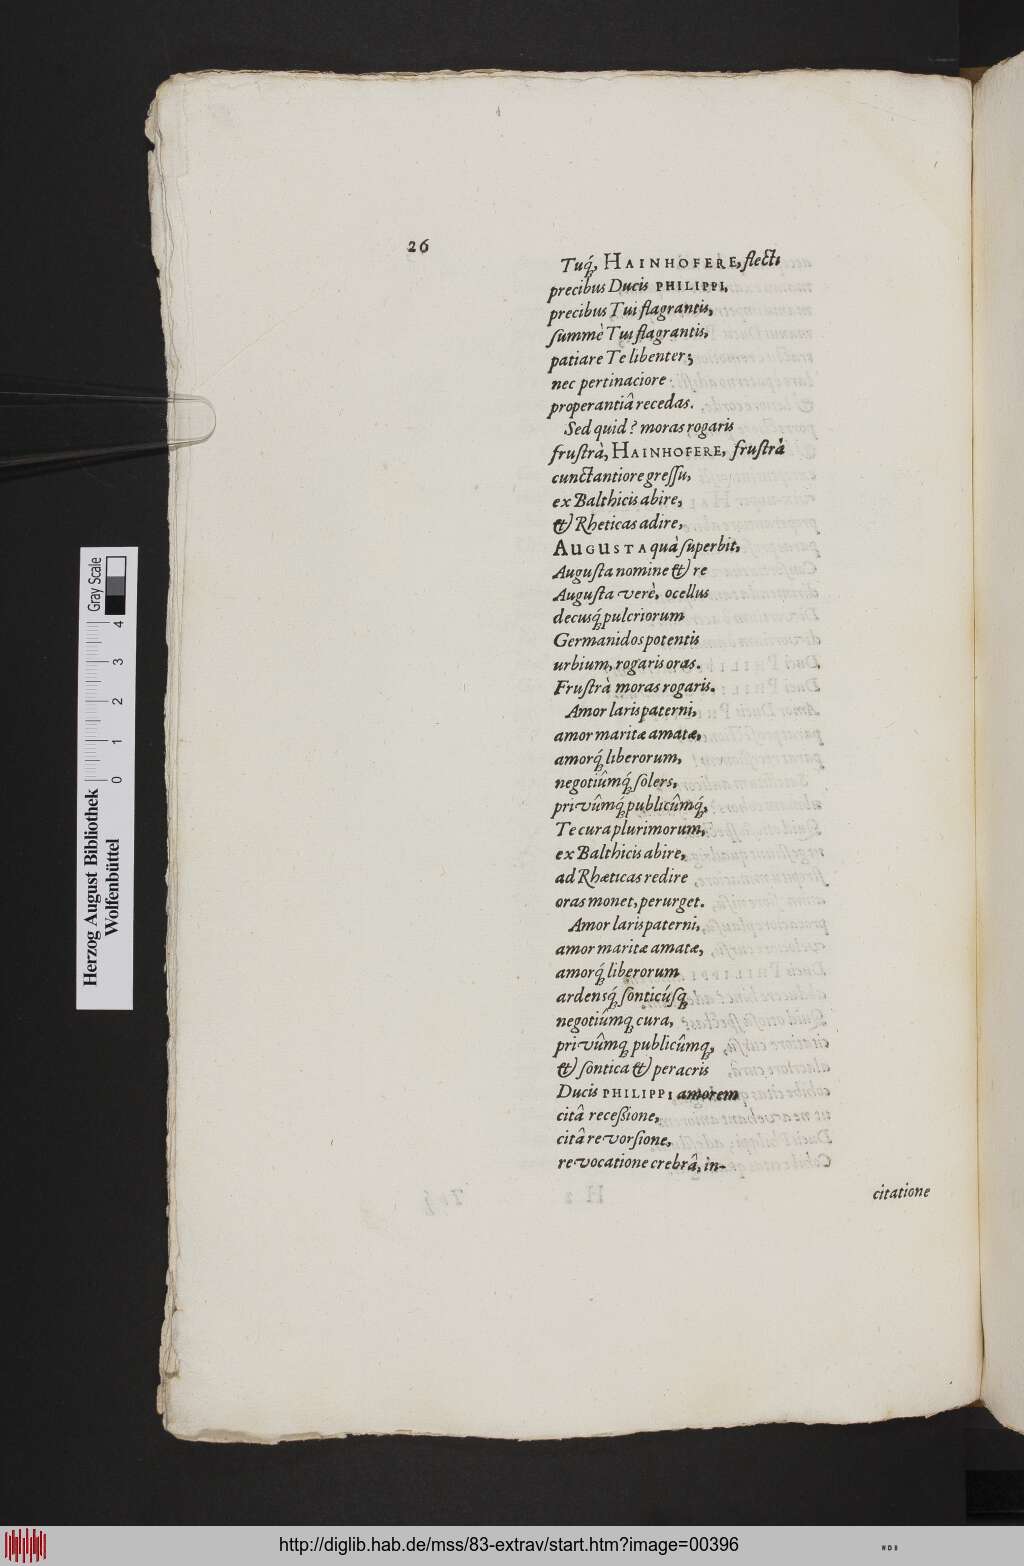 26
Tuq́;, HAINHOFERE, flecti
precibus Ducis PHILIPPI,
precibus Tui flagrantis,
summè Tui flagrantis,
patiare Te libenter;
nec pertinaciore
properantiâ recedas.
Sed quid? moras rogaris
frustrà, HAINHOFERE, frustrà
cunctantiore gressu,
ex Balthicis abire,
& Rheticas adire,
AUGUSTA quà superbit,
Augusta nomine & re
Augusta verè, ocellus
decusq́; pulcriorum
Germanidos potentis
urbium, rogaris oras.
Frustrà moras rogaris.
Amor laris paterni,
amor maritæ amatæ,
amorq́; liberorum,
negotiûmq́; solers,
privûmq́; publicûmq́;,
Te cura plurimorum,
ex Balthicis abire,
ad Rhæticas redire
oras monet, perurget.
Amor laris paterni,
amor maritæ amatæ,
amorq́; liberorum
ardensq́; sonticúsq;
negotiûmq; cura,
privûmq; publicûmq;,
& sontica & peracris
Ducis PHILIPPI amorem
citâ recessione,
citâ revorsione,
revocatione crebrâ, in-
citatione
Herzog August Bibliothek
Wolfenbüttel
0 1 2 3 4
Gray Scale
http://diglib.hab.de/mss/83-extrav/start.htm?image=00396